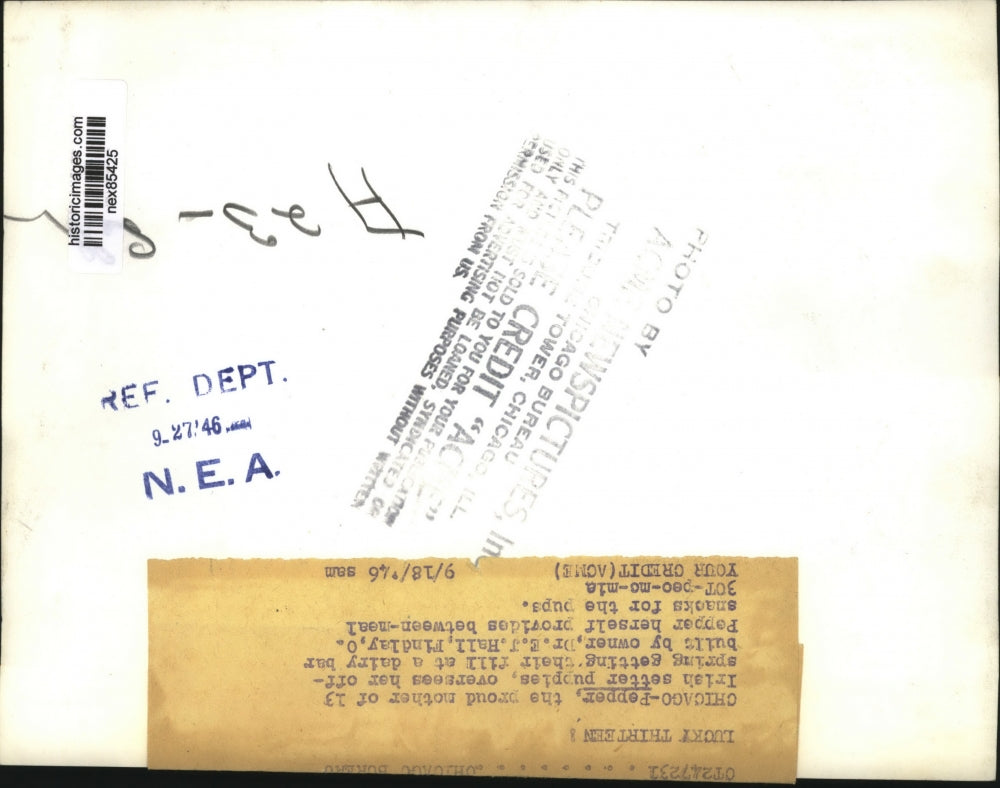 historicimages.com
nex85425
PHOTO BY
ACME NEWSPICTURES, Inc
CHICAGO BUREAU
TRIBUNE TOWER, CHICAGO, ILL.
PLEASE CREDIT "ACME"
THIS PICTURE SOLD TO YOU FOR YOUR PUBLICATION
ONLY AND MUST NOT BE LOANED, SYNDICATED OR
USED FOR ADVERTISING PURPOSES WITHOUT WRITTEN
PERMISSION FROM US.
REF. DEPT.
9-27'46
N.E.A.
CT247231 . . . . . . . . CHICAGO BUREAU
LUCKY THIRTEEN:
CHICAGO-Pepper, the proud mother of 13
Irish setter puppies, oversees her off-
spring getting their fill at a dairy bar
built by owner, Dr.E.J.Hall, Findlay, O.
Pepper herself provides between-meal
snacks for the pups.
30T-peo-mo-mia
YOUR CREDIT(ACME) 9/18/46 sam